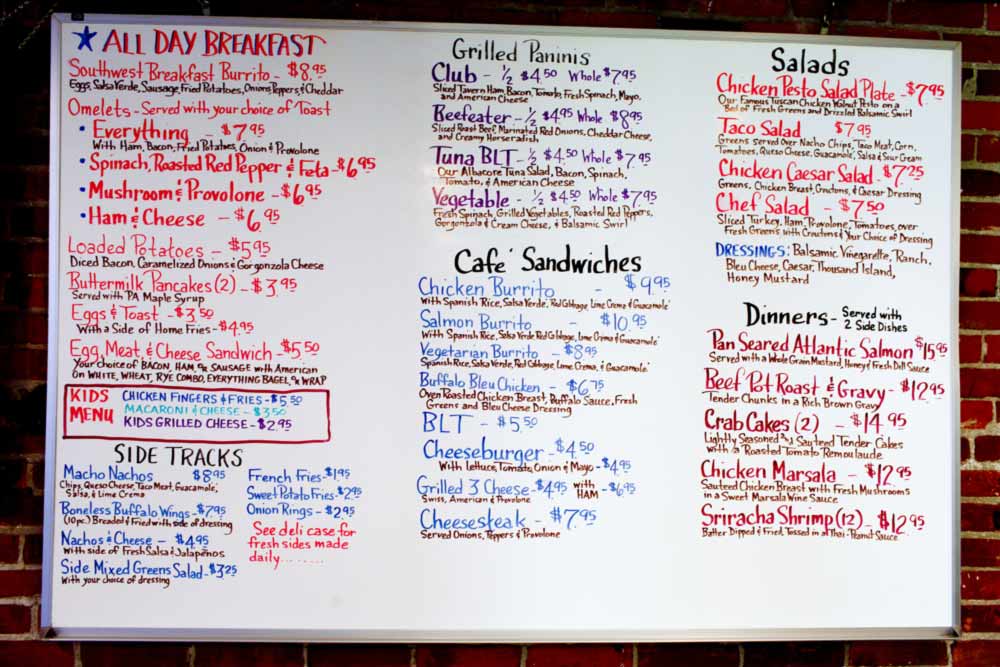 ★ ALL DAY BREAKFAST
Southwest Breakfast Burrito - $8.95
Eggs, Salsa Verde, Sausage, Fried Potatoes, Onions, Peppers, & Cheddar
Omelets - Served with your choice of Toast
• Everything - $7.95
With Ham, Bacon, Fried Potatoes, Onion & Provolone
• Spinach, Roasted Red Pepper & Feta - $6.95
• Mushroom & Provolone - $6.95
• Ham & Cheese - $6.95
Loaded Potatoes - $5.95
Diced Bacon, Caramelized Onions & Gorgonzola Cheese
Buttermilk Pancakes (2) - $3.95
Served with PA Maple Syrup
Eggs & Toast - $3.50
With a Side of Home Fries - $4.95
Egg, Meat, & Cheese Sandwich - $5.50
Your choice of BACON, HAM, OR SAUSAGE with American
On WHITE, WHEAT, RYE COMBO, EVERYTHING BAGEL, OR WRAP
KIDS MENU
CHICKEN FINGERS & FRIES - $5.50
MACARONI & CHEESE - $3.50
KIDS GRILLED CHEESE - $2.95
SIDE TRACKS
Macho Nachos $8.95
Chips, Queso Cheese, Taco Meat, Guacamole,
Salsa, & Lime Crema
Boneless Buffalo Wings - $7.95
(10pc.) Breaded & Fried with side of dressing
Nachos & Cheese - $4.95
with side of Fresh Salsa & Jalapeños
Side Mixed Greens Salad - $3.25
with your choice of dressing
French Fries - $1.95
Sweet Potato Fries - $2.95
Onion Rings - $2.95
See deli case for
fresh sides made
daily.......
Grilled Paninis
Club - 1/2 $4.50 Whole $7.95
Sliced Tavern Ham, Bacon, Tomato, Fresh Spinach, Mayo,
and American Cheese
Beefeater - 1/2 $4.95 Whole $8.95
Sliced Roast Beef, Marinated Red Onions, Cheddar Cheese,
and Creamy Horseradish
Tuna BLT - 1/2 $4.50 Whole $7.95
Our Albacore Tuna Salad, Bacon, Spinach,
Tomato, & American Cheese
Vegetable - 1/2 $4.50 Whole $7.95
Fresh Spinach, Grilled Vegetables, Roasted Red Peppers,
Gorgonzola & Cream Cheese, & Balsamic Swirl
Cafe' Sandwiches
Chicken Burrito - $9.95
with Spanish Rice, Salsa Verde, Red Cabbage, Lime Crema & Guacamole
Salmon Burrito - $10.95
With Spanish Rice, Salsa Verde Red Cabbage, Lime Crema & Guacamole
Vegetarian Burrito - $8.95
Spanish Rice, Salsa Verde, Red Cabbage, Lime Crema, & Guacamole
Buffalo Bleu Chicken - $6.75
Oven Roasted Chicken Breast, Buffalo Sauce, Fresh
Greens and Bleu Cheese Dressing
BLT - $5.50
Cheeseburger - $4.50
With Lettuce, Tomato, Onion & Mayo - $4.95
Grilled 3 Cheese - $4.95 with HAM - $6.95
Swiss, American & Provolone
Cheesesteak - $7.95
Served Onions, Peppers & Provolone
Salads
Chicken Pesto Salad Plate - $7.95
Our Famous Tuscan Chicken Walnut Pesto on a
Bed of Fresh Greens and Drizzled Balsamic Swirl
Taco Salad $7.95
Greens Served Over Nacho Chips, Taco Meat, Corn,
Tomatoes, Queso Cheese, Guacamole, Salsa & Sour Cream
Chicken Caesar Salad - $7.25
Greens, Chicken Breast, Croutons, & Caesar Dressing
Chef Salad - $7.50
Sliced Turkey, Ham, Provolone, Tomatoes, over
Fresh Greens with Croutons & Your Choice of Dressing
DRESSINGS: Balsamic Vinegarette, Ranch,
Bleu Cheese, Caesar, Thousand Island,
Honey Mustard
Dinners - Served with 2 Side Dishes
Pan Seared Atlantic Salmon $15.95
Served with a Whole Grain Mustard, Honey & Fresh Dill Sauce
Beef Pot Roast & Gravy - $12.95
Tender Chunks in a Rich Brown Gravy
Crab Cakes (2) - $14.95
Lightly Seasoned Sauteed Tender Cakes
with a Roasted Tomato Remoulade
Chicken Marsala - $12.95
Sauteed Chicken Breast with Fresh Mushrooms
in a Sweet Marsala Wine Sauce
Sriracha Shrimp (12) - $12.95
Batter Dipped & Fried, Tossed in a Thai-Peanut Sauce